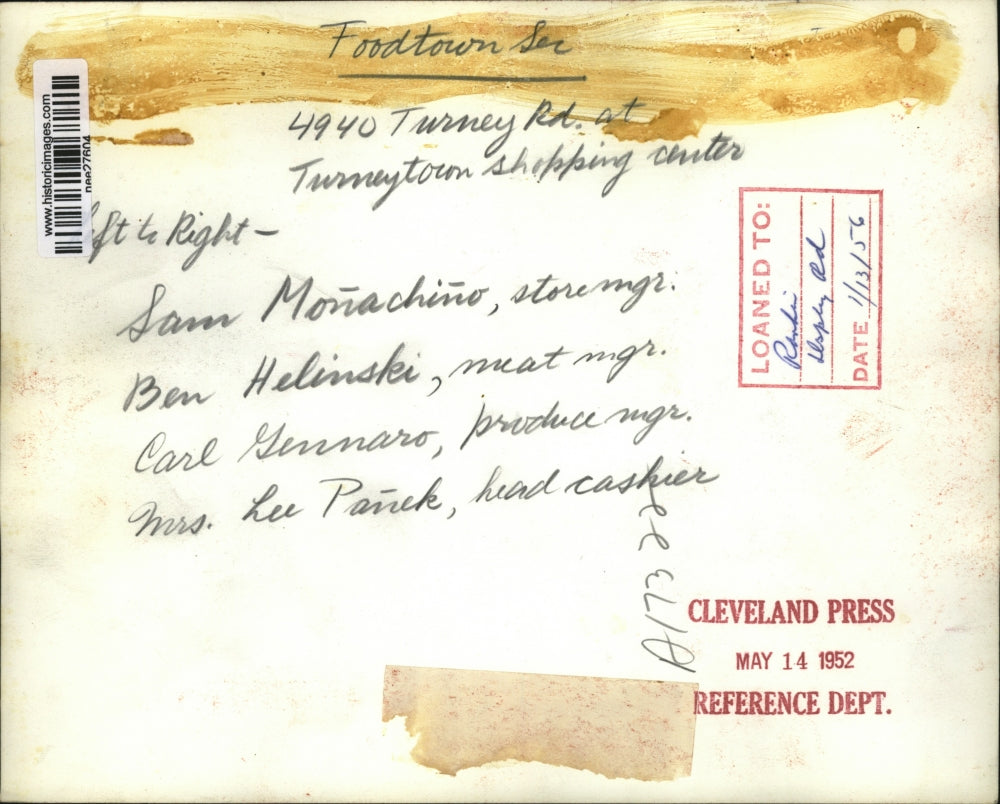 Foodtown Sec
4940 Turney Rd. at
Turneytown shopping center
www.historicimages.com
nee27604
ft to Right —
Sam Moñachiño, store mgr.
Ben Helinski, meat mgr.
Carl Gennaro, produce mgr.
Mrs. Lee Pañek, head cashier
LOANED TO:
DATE 1/13/56
A173 22
CLEVELAND PRESS
MAY 14 1952
REFERENCE DEPT.